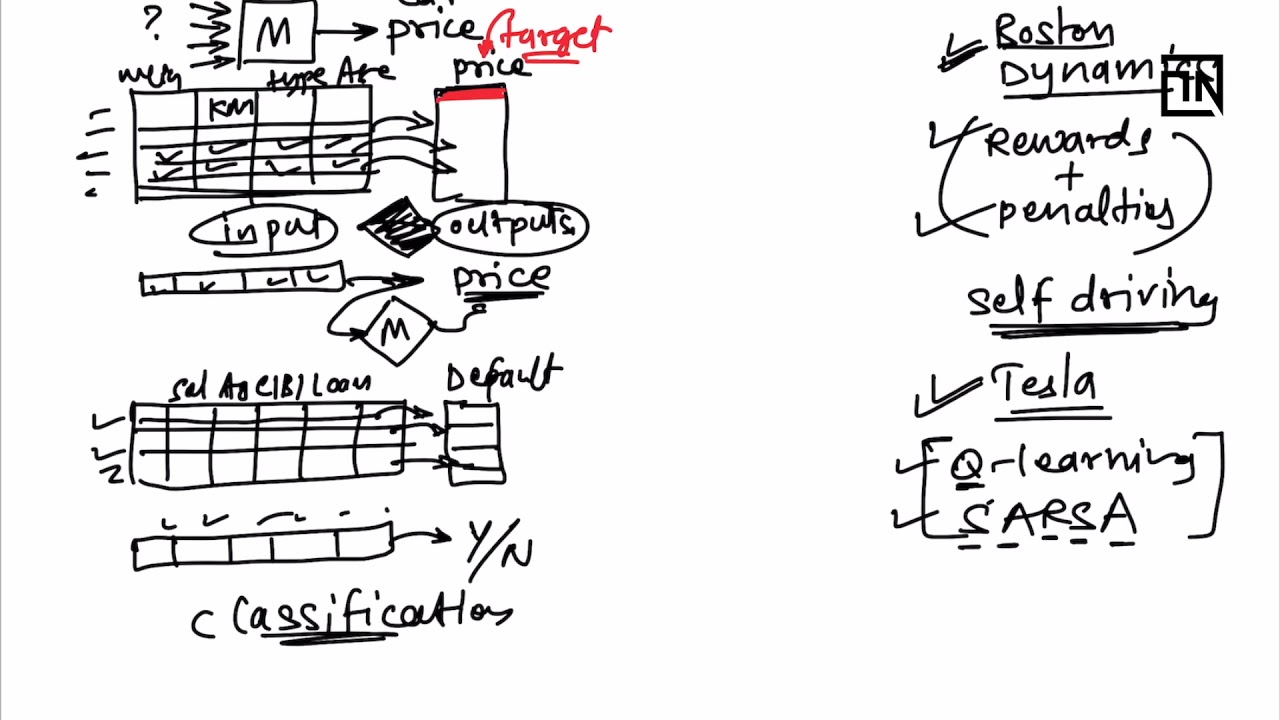 ?
M
price
target
type Age
price
KM
input
outputs
price
M
Sal Age C/B/Loan
Default
Y/N
Classification
Boston
Dynamics
Rewards
+
penalties
self driving
Tesla
Q-learning
SARSA